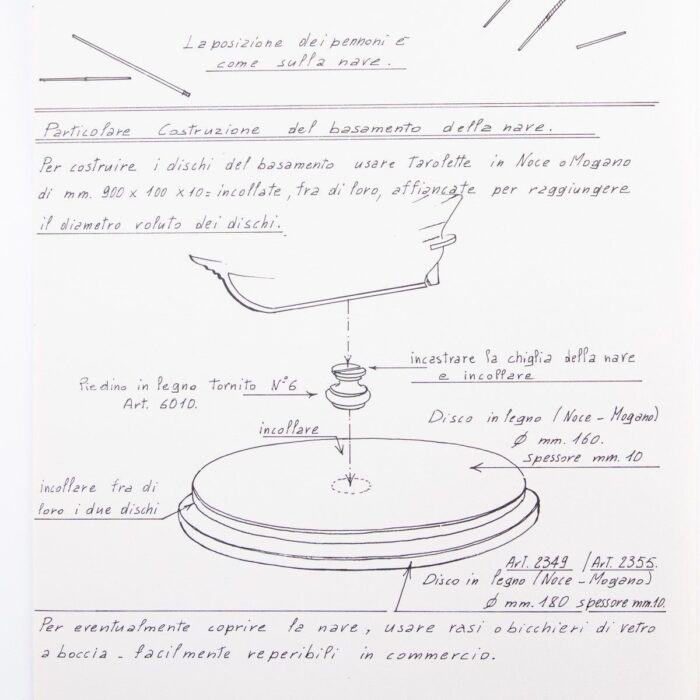 La posizione dei pennoni è
come sulla nave.
Particolare Costruzione del basamento della nave.
Per costruire i dischi del basamento usare Tavolette in Noce o Mogano
di mm. 900 x 100 x 10= incollate, fra di loro, affiancate per raggiungere
il diametro voluto dei dischi.
incastrare la chiglia della nave
e incollare
Piedino in legno tornito N°6
Art. 6010.
Disco in legno (Noce - Mogano)
Ø mm. 160.
spessore mm. 10
incollare
incollare fra di
loro i due dischi
Art. 2349 / Art. 2355.
Disco in legno (Noce - Mogano)
Ø mm. 180 spessore mm. 10.
Per eventualmente coprire la nave, usare rasi o bicchieri di vetro
a boccia - facilmente reperibili in commercio.